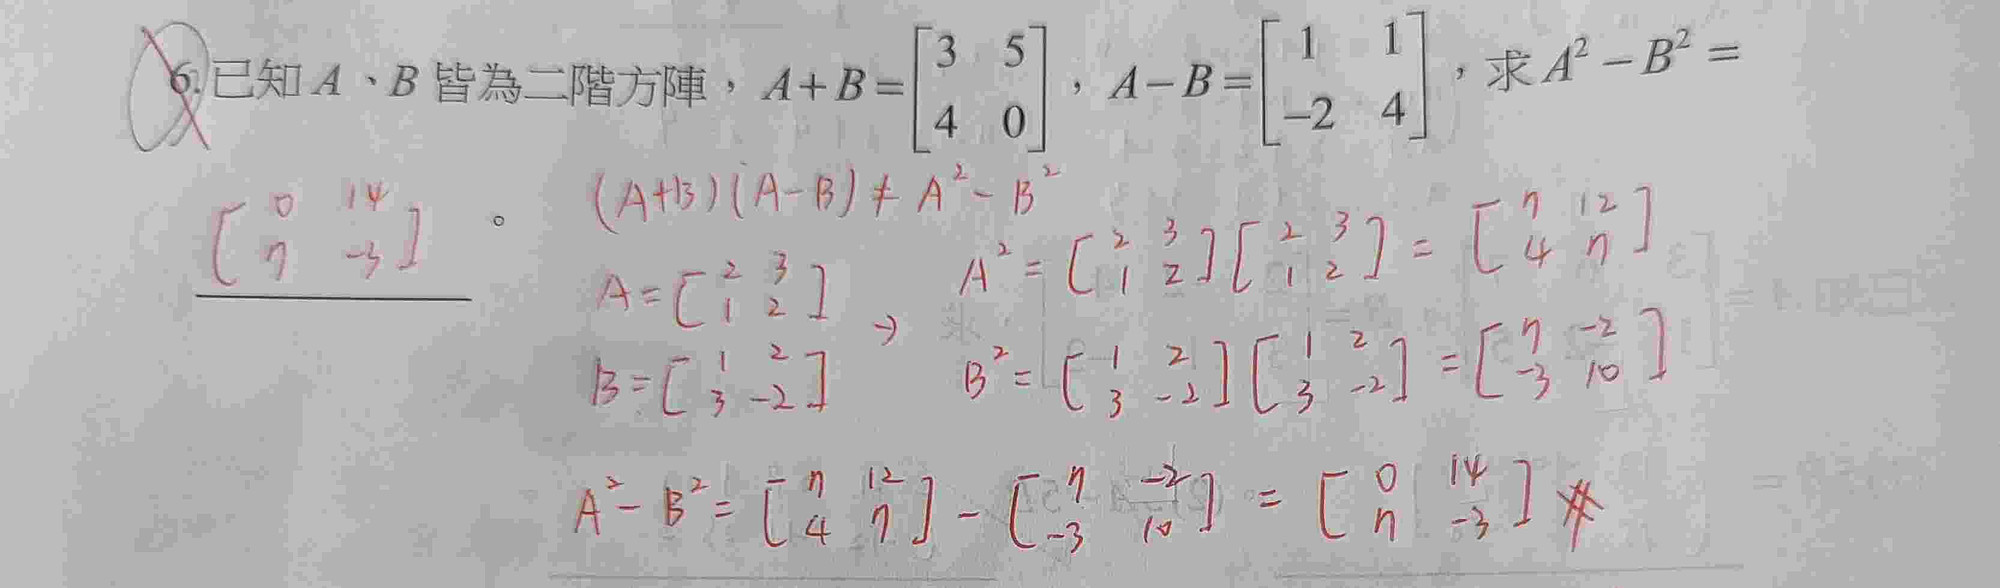 6. 已知 A、B 皆為二階方陣，A+B=[3 5; 4 0]，A−B=[1 1; −2 4]，求 A²−B²=
[0 14; 7 -3]。
(A+B)(A-B)≠A²-B²
A=[2 3; 1 2] → A²=[2 3; 1 2][2 3; 1 2]=[7 12; 4 7]
B=[1 2; 3 -2] B²=[1 2; 3 -2][1 2; 3 -2]=[7 -2; -3 10]
A²-B²=[7 12; 4 7]-[7 -2; -3 10]=[0 14; 7 -3]#